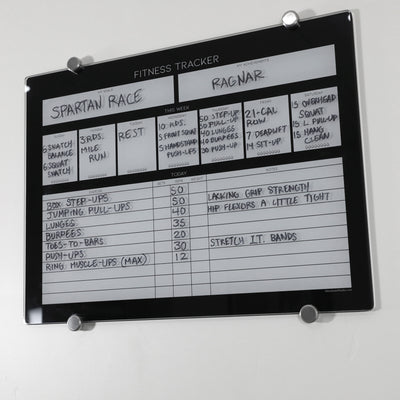 FITNESS TRACKER
SPARTAN RACE
RAGNAR
THIS WEEK
6 SNATCH
BALANCE
6 SQUAT
SNATCH
3 RDS.
MILE
RUN
REST
10 RDS.
5 FRONT SQUAT
5 HANDSTAND
PUSH-UPS
50 STEP-UP
50 PULL-UP
40 LUNGES
40 BURPEES
30 TOES-UP
21-CAL
ROW
7 DEADLIFT
14 SIT-UP
15 OVERHEAD
SQUAT
15 L PULL-UP
15 HANG
CLEAN
TODAY
BOX STEP-UPS 50 LACKING GRIP STRENGTH
JUMPING PULL-UPS 50 HIP FLEXORS A LITTLE TIGHT
LUNGES 40
BURPEES 35
TOES-TO-BARS 20 STRETCH I.T. BANDS
PUSH-UPS 30
RING MUSCLE-UPS (MAX) 12